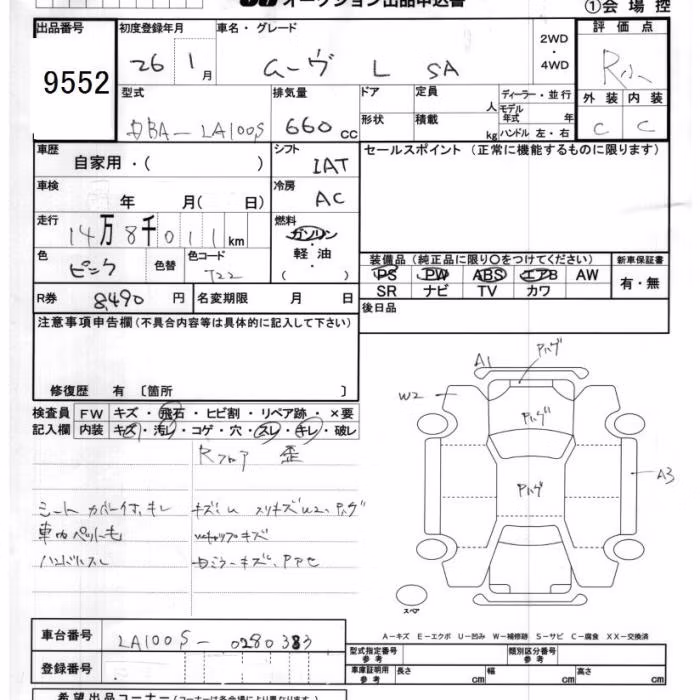 オークション出品申込書
①会場控
出品番号 9552
初度登録年月 26 1月
車名・グレード ムーヴ L SA
2WD・4WD
評価点 R
外装 C 内装 C
型式 DBA-LA100S
排気量 660cc
ドア 形状
定員 人 積載 kg
ディーラー・並行
モデル年式 年
ハンドル 左・右
車歴 自家用・( )
シフト IAT
セールスポイント (正常に機能するものに限ります)
車検 年 月( 日)
冷房 AC
走行 14万8千011km
燃料 ガソリン・軽油・( )
色 ピンク 色替 色コード T22
装備品 (純正品に限り○をつけてください)
新車保証書 有・無
PS PW ABS エアB AW
SR ナビ TV カワ
R券 8,490円
名変期限 月 日
後日品
注意事項申告欄(不具合内容等は具体的に記入して下さい)
修復歴 有 〔箇所 〕
検査員記入欄
FW キズ・飛石・ヒビ割・リペア跡・×要
内装 キズ・汚レ・コゲ・穴・スレ・キレ・破レ
Rフロア 歪
シートカバー付、キレ
車内ペット毛
ハンドルスレ
A1
W2
A3
スペア
A-キズ E-エクボ U-凹み W-補修跡 S-サビ C-腐食 XX-交換済
車台番号 LA100S-0280383
登録番号
型式指定番号 参考
類別区分番号 参考
車庫証明用 参考 長さ cm 幅 cm 高さ cm
希望出品コーナー